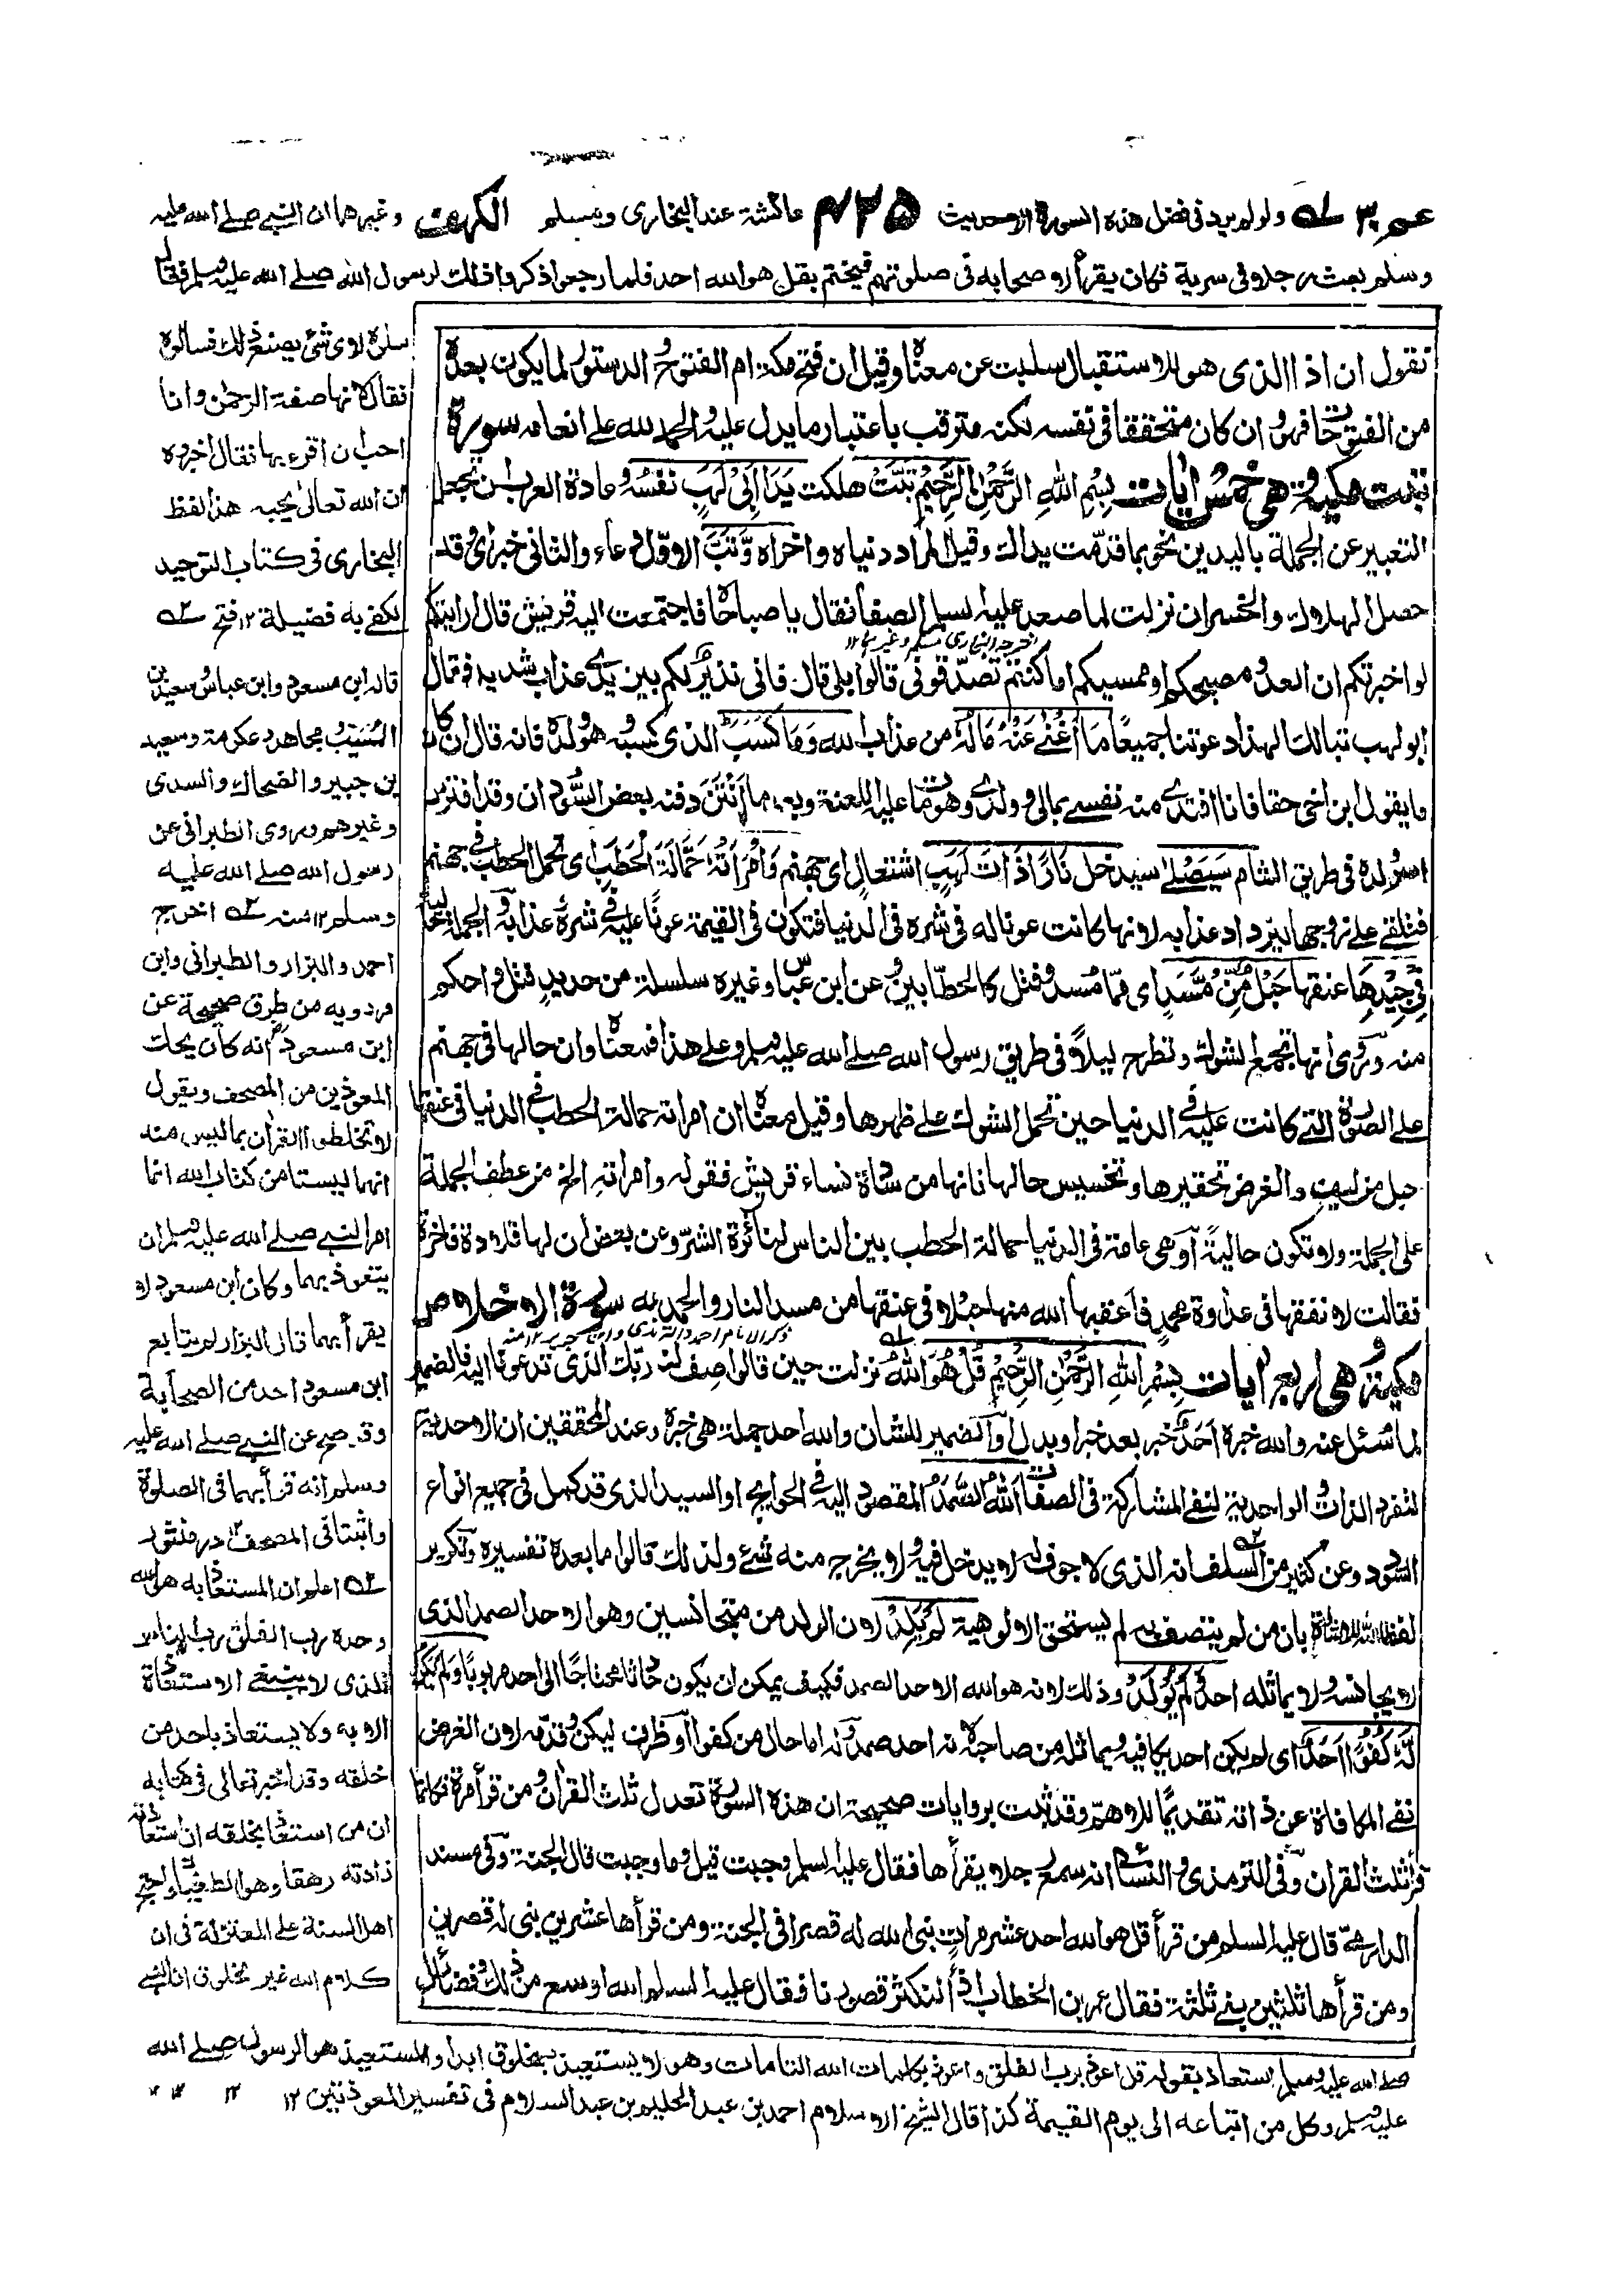 عم ٣٠ ولو لم يرد في فضل هذه السورة الا حديث ٤٢٥ عائشة عند البخاري ومسلم وغيرهما ان النبي صلى الله عليه
وسلم بعث رجلا في سرية فكان يقرأ لاصحابه في صلوتهم فيختم بقل هو الله احد فلما رجعوا ذكروا ذلك لرسول الله صلى الله عليه وسلم فقال
نقول ان اذا الذي هو للاستقبال سلبت عن معناه وقيل ان فتح مكة ام الفتوح والدستور لما يكون بعده
من الفتوحات فهو ان كان متحققا في نفسه لكنه مترقب باعتبار ما يدل عليه والحمد لله على انعامه سورة
تبت مكية وهي خمس ايات بسم الله الرحمن الرحيم تبت هلكت يدا ابي لهب نفسه وعادة العرب ان تجعل
التعبير عن الجملة باليدين نحو بما قدمت يداك وقيل المراد دنياه واخراه وتب الاول دعاء والثاني خبر اي وقد
حصل الهلاك والخسران نزلت لما صعد عليه السلم الصفا فقال يا صباحاه فاجتمعت اليه قريش قال ارايتكم
اخرجه البخاري ومسلم وغيرهما ١٢
لو اخبرتكم ان العدو مصبحكم او ممسيكم اما كنتم تصدقوني قالوا بلى قال فاني نذير لكم بين يدي عذاب شديد فقال
ابو لهب تبا لك الهذا دعوتنا جميعا ما اغنى عنه ماله من عذاب الله وما كسب الذي كسبه هو ولده فانه قال ان كان
ما يقول ابن اخي حقا فانا افتدي منه نفسي بمالي وولدي وهو مات عليه اللعنة وبعد ما انتن دفنه بعض السودان وقد افترس
اسد ولده في طريق الشام سيصلى سيدخل نارا ذات لهب اشتعال اي جهنم وامراته حمالة الحطب اي تحمل الحطب في جهنم
فتلقي على زوجها ليزداد عذابه لانها كانت عونا له في شره في الدنيا فتكون في القيمة عونا عليه في شرة عذابه والجملة
في جيدها عنقها حبل من مسد اي مما مسد وفتل كالحطابين وعن ابن عباس وغيره سلسلة من حديد فتل واحكم
منه وروي انها تجمع الشوك وتطرح ليلا في طريق رسول الله صلى الله عليه وسلم وعلى هذا فمعناه وان حالها في جهنم
على الصورة التي كانت عليه في الدنيا حين تحمل الشوك على ظهرها وقيل معناه ان امراته حمالة الحطب في الدنيا في عنقها
حبل من ليف والغرض تحقيرها وتخسيس حالها فانها من سادة نساء قريش فقوله وامراته الخ من عطف الجملة
على الجملة ولا تكون حالية او هي عامة في الدنيا حمالة الحطب بين الناس لنائرة الشر وعن بعض ان لها قلادة فاخرة
فقالت لا نفقها في عداوة محمد فاعقبها الله منها حبلا في عنقها من مسد النار والحمد لله سورة الاخلاص
ذكره الامام احمد والترمذي وابن جرير ١٢ منه
مكية وهي اربع ايات بسم الله الرحمن الرحيم قل هو الله نزلت حين قالوا صف لنا ربك الذي تدعونا اليه فالضمير
لما سئل عنه والله خبره احد خبر بعد خبر او بدل او الضمير للشان والله احد جملة هي خبره وعند المحققين ان الاحدية
لتفرد الذات والواحدية لنفي المشاركة في الصفات الله الصمد المقصود اليه في الحوايج او السيد الذي قد كمل في جميع انواع
السودد وعن كثير من السلف انه الذي لا جوف له لا يدخل فيه ولا يخرج منه شيء ولذلك قالوا ما بعده تفسيره وتكرير
لفظ بان من لم يتصف به لم يستحق الالوهية لم يلد لان الولد من متجانسين وهو الاحد الصمد الذي
لا يجانسه ولا يماثله احد ولم يولد وذلك لانه هو الله الاحد الصمد فكيف يمكن ان يكون حادثا محتاجا الى احد مربوبا ولم يكن
له كفوا احد اي لم يكن احد يكافيه ويماثله من صاحبة لانه احد صمد وله اما حال من كفوا او ظرف ليكن وقدمه لان الغرض
نفي المكافاة عن ذاته تقديما للاهم وقد ثبت بروايات صحيحة ان هذه السورة تعدل ثلث القران ومن قرأ مرة فكانما
قرأ ثلث القران وفي الترمذي والنسائي انه سمع رجلا يقرأها فقال عليه السلم وجبت قيل وما وجبت قال الجنة وفي مسند
الدارمي قال عليه السلم من قرأ قل هو الله احد عشر مرات بنى الله له قصرا في الجنة ومن قرأها عشرين بني له قصرين
ومن قرأها ثلثين بني ثلثة فقال عمر بن الخطاب اذا لتكثر قصورنا فقال عليه السلم الله اوسع من ذلك وفضائل
سلوه لاي شيء يصنع ذلك فسالوه
فقال لانها صفة الرحمن وانا
احب ان اقرء بها فقال اخبروه
ان الله تعالى يحبه هذا لفظ
البخاري في كتاب التوحيد
يكفي به فضيلة ١٢ فتح
قاله ابن مسعود وابن عباس وسعيد بن
المسيب ومجاهد وعكرمة وسعيد
بن جبير والضحاك والسدي
وغيرهم وروى الطبراني عن
رسول الله صلى الله عليه
وسلم ١٢ منه اخرج
احمد والبزار والطبراني وابن
مردويه من طرق صحيحة عن
ابن مسعود انه كان يحك
المعوذتين من المصحف ويقول
لا تخلطوا القرأن بما ليس منه
انهما ليستا من كتاب الله انما
امر النبي صلى الله عليه وسلم ان
يتعوذ بهما وكان ابن مسعود لا
يقرأ بهما قال البزار لم يتابع
ابن مسعود احد من الصحابة
وقد صح عن النبي صلى الله عليه
وسلم انه قرأ بهما في الصلوة
واثبتا في المصحف ١٢ در منثور
اعلم ان المستعاذ به هو الله
وحده رب الفلق رب الناس
الذي لا ينبغي الاستعاذة
الا به ولا يستعاذ باحد من
خلقه وقد اخبر تعالى في كتابه
ان من استعاذ بخلقه ان استعاذته
زادته رهقا وهو الطغيان واحتج
اهل السنة على المعتزلة في ان
كلام الله غير مخلوق ان النبي
صلى الله عليه وسلم استعاذ بقوله قل اعوذ برب الفلق واعوذ بكلمات الله التامات وهو لا يستعيذ بمخلوق ابدا والمستعيذ هو الرسول صلى الله
عليه وسلم وكل من اتباعه الى يوم القيمة كذا قال الشيخ الاسلام احمد بن عبد الحليم بن عبد السلام في تفسير المعوذتين ١٢